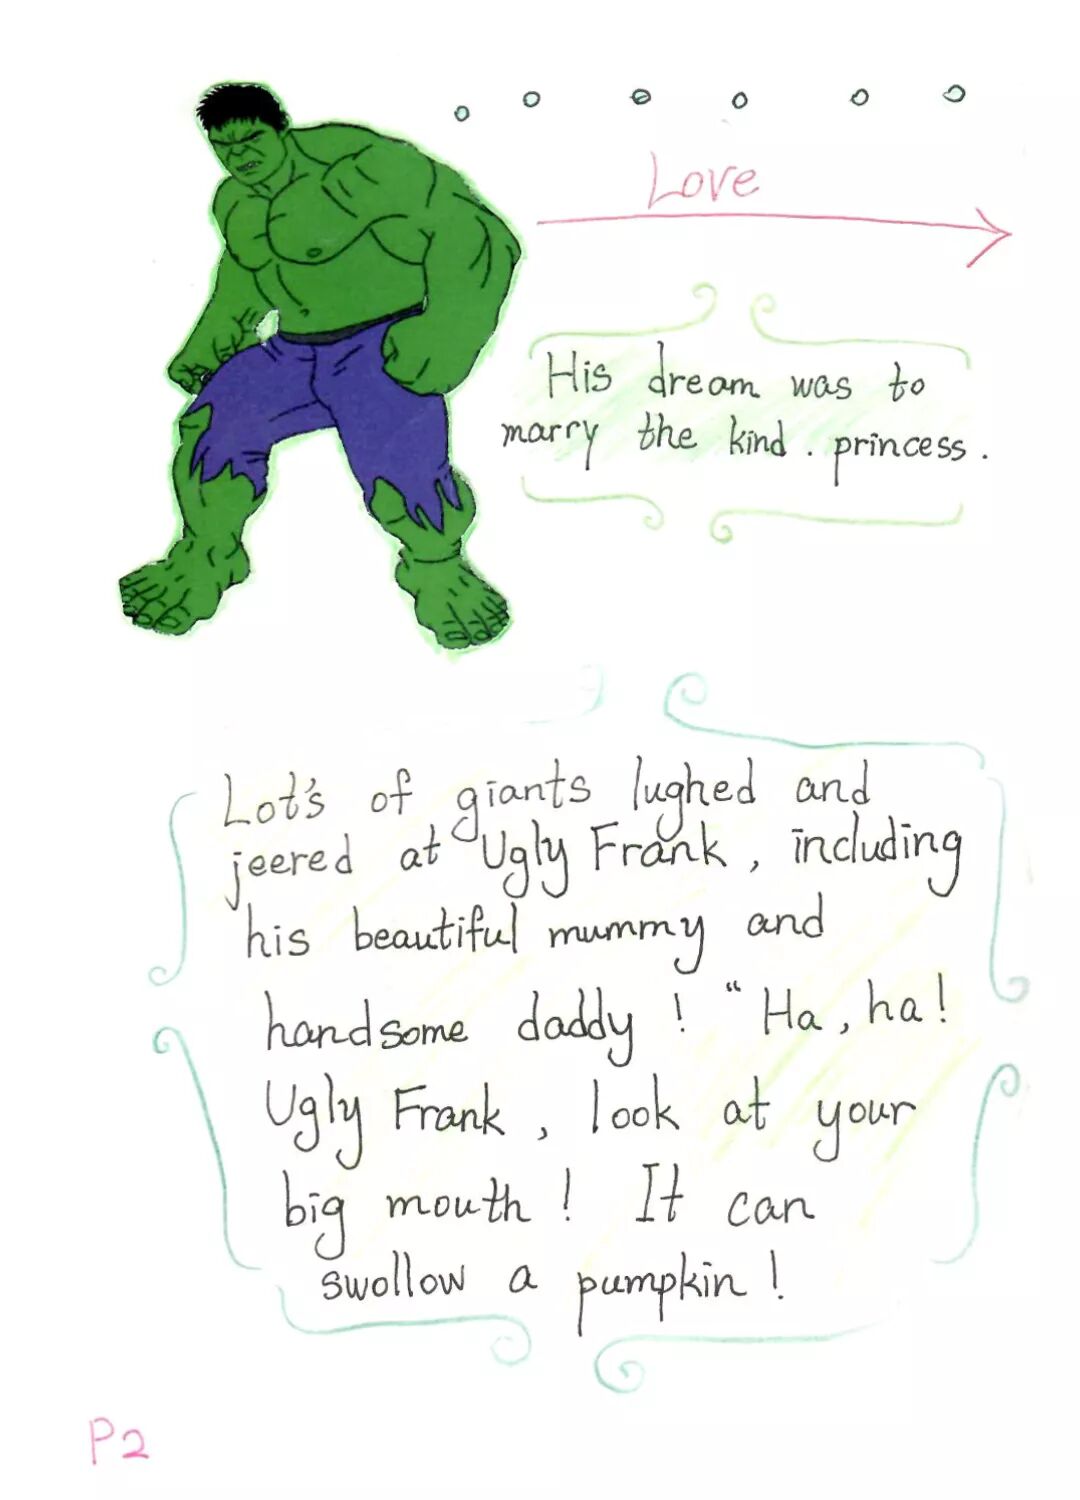 Love
His dream was to
marry the kind . princess .
Lot's of giants lughed and
jeered at Ugly Frank , including
his beautiful mummy and
handsome daddy ! “ Ha , ha !
Ugly Frank , look at your
big mouth ! It can
swollow a pumpkin !
P2